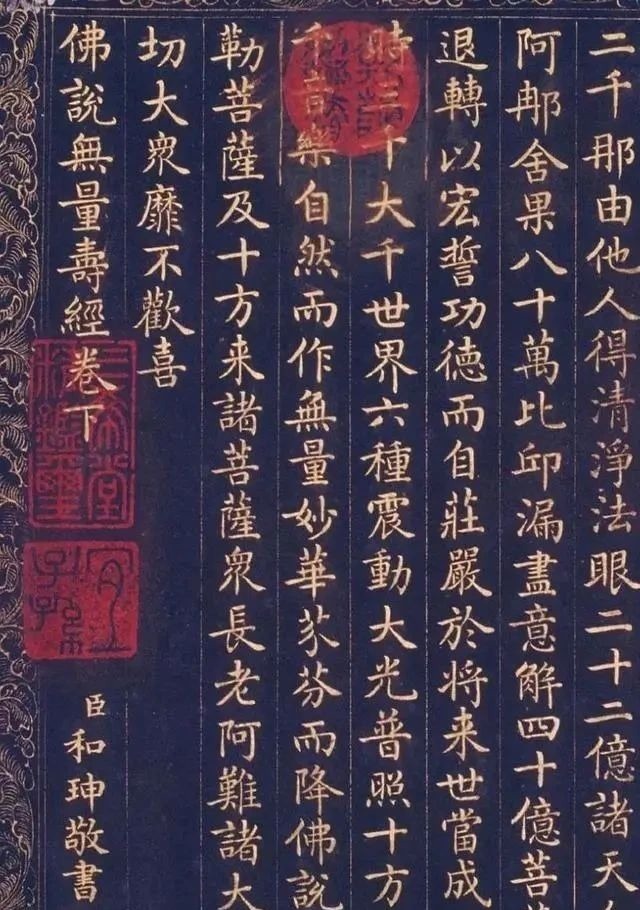 二千那由他人得清淨法眼二十二億諸天
阿郍舍果八十萬比邱漏盡意解四十億菩
退轉以宏誓功德而自莊嚴於將来世當成
時三千大千世界六種震動大光普照十方
樂自然而作無量妙華芬芬而降佛說
勒菩薩及十方来諸菩薩眾長老阿難諸大
切大眾靡不歡喜
佛說無量壽經卷下
三希堂精鑑璽
宜子孫
臣和珅敬書